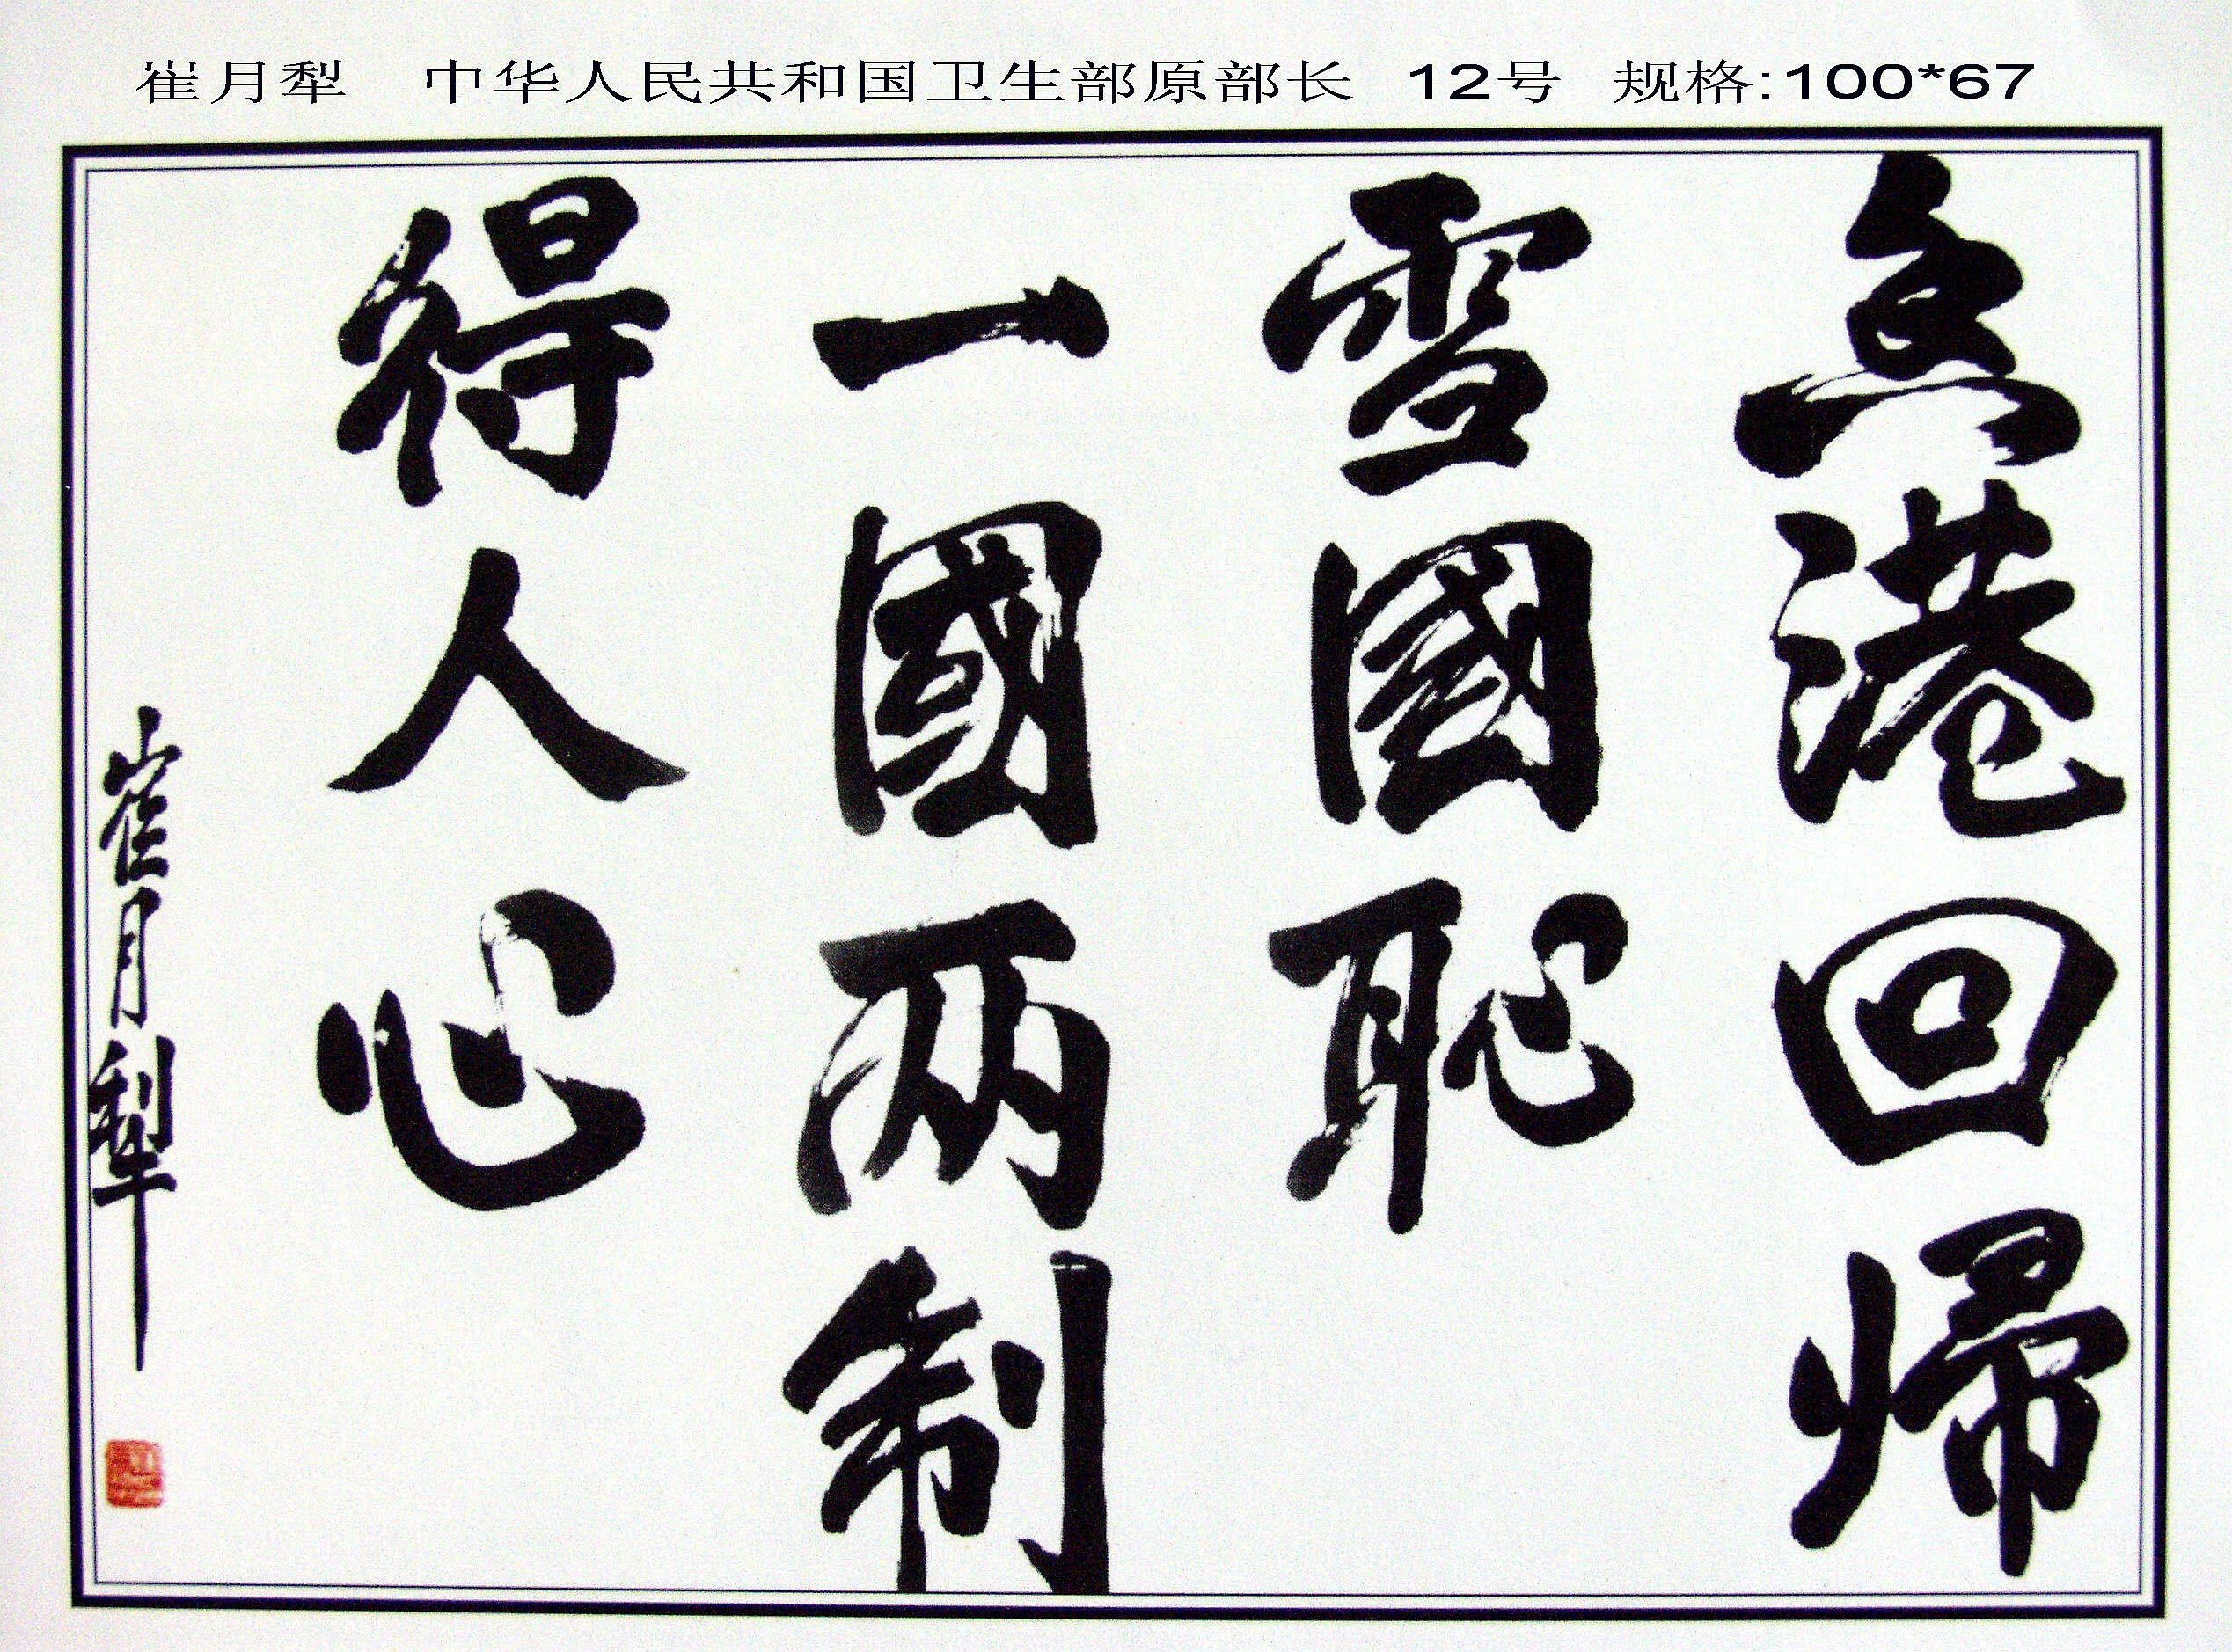 崔月犁 中华人民共和国卫生部原部长 12号 规格:100*67
香港回帰
雪國恥
一國两制
得人心
崔月犁